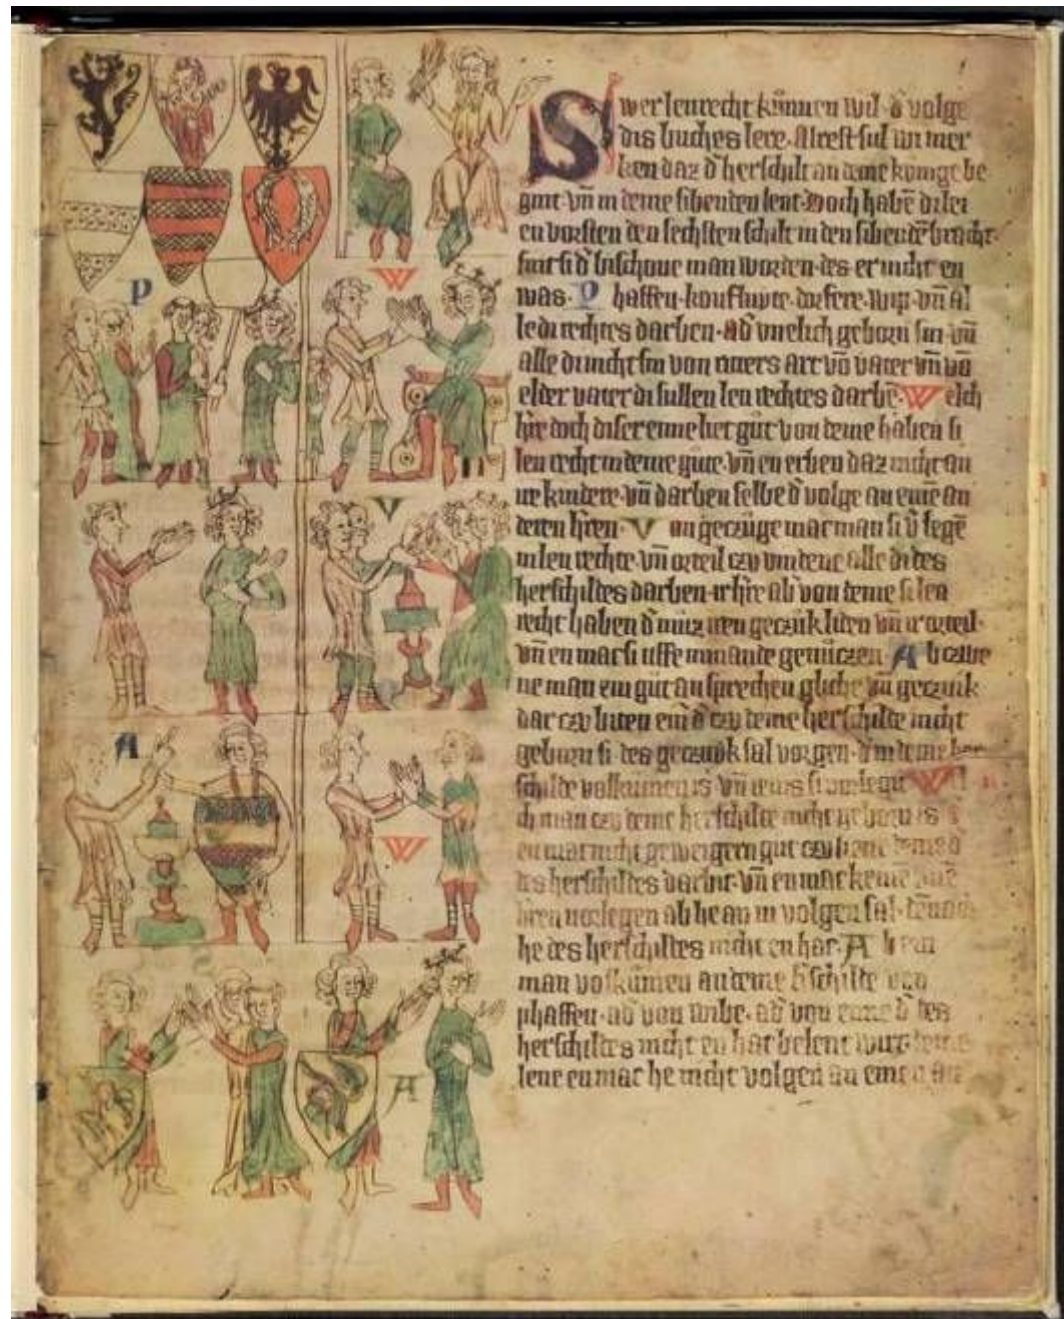 P
W
V
A
W
A
Swer lenrecht kunnen wil d volge
dis buches lere. Alrest sul wir mer
ken daz d herschilt an deme konige be
gint. vn in deme sibenden lent. Doch habe di lei
en vorsten den sechsten schilt in den sibende bracht.
sint si d bischoue man worden. des er nicht en
was. P haffen. koufluyte. dorfere. wip. vn al
le di rechtes darben. ad vnelich geborn sin. vn
alle di nicht sin von ritters art vo vater vn vo
elder vater di sullen len rechtes darbe. W elch
h're doch diser eime liet gut von deme haben si
len recht in deme gute. vn en erben daz nicht an
ire kindere. vn darben selbe d volge an eine an
deren h'ren. V on geczuge mac man si v'legē
in len rechte. vn orteil czu vindene alle di des
herschildes darben. ir h're ab' von deme si len
recht haben d muz iren geczuk liden vn ir orteil.
vn en mac si uffe nimande genuczen A b czwe
ne man ein gut an sprechen gliche vn geczuk
dar czu biten ein d czu deme herschilde nicht
geborn si. des geczuok sal vorgen. d in deme her
schilde volkumen is. vn ienis si vorlegit W el
ch man czu deme herschilde nicht geborn is
en mac nicht geweigern gut czu liene
des herschildes darbit. vn en mac keinē
h'ren vorlegen ab he an in volgen sal.
he des herschildes nicht en hat. A b ein
man volkumen an deme h'schilde von
phaffen. ad von wibe. ad von eime d des
herschildes nicht en hat belent wirt
lene en mac he nicht volgen an einen an